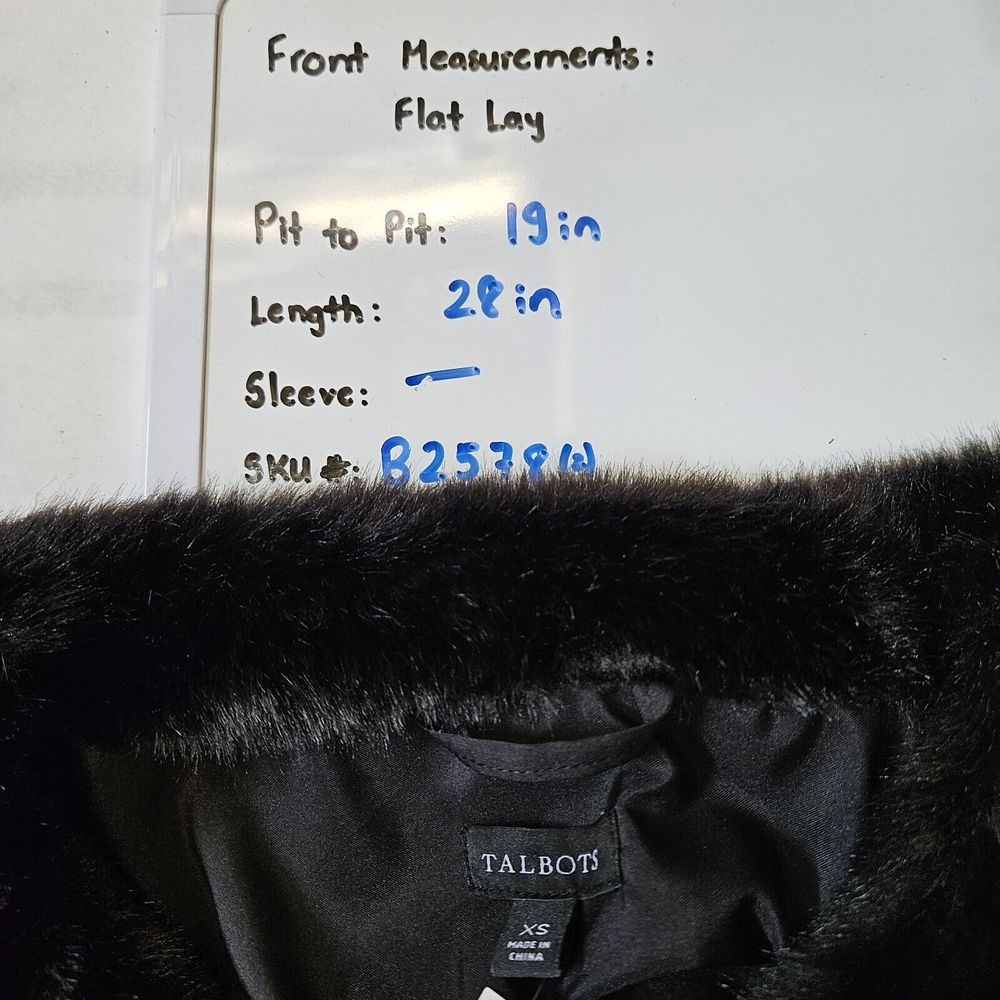 Front Measurements:
Flat Lay
Pit to Pit: 19in
Length: 28in
Sleeve: —
SKU #:
TALBOTS
XS
MADE IN
CHINA